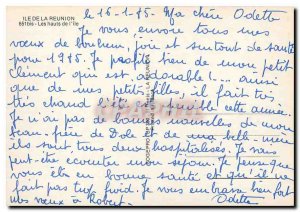 ILE DE LA REUNION
851bis - Les hauts de l'île
le 16-1-85 - Ma chère Odette
Je vous envoie tous mes
vœux de bonheur, joie et surtout de santé
pour 1985. Je profite bien de mon petit
Clément qui est adorable!... ainsi
que de mes petites filles, il fait très
très chaud cette année.
Je n'ai pas de bonnes nouvelles de mon
beau-frère de Dole et de ma belle-mère
tous deux hospitalisés. Je vais
peut-être écourter mon séjour. Je pense que
vous êtes en bonne santé et qu'il ne
fait pas trop froid. Je vous embrasse bien fort
mes vœux à Robert. Odette